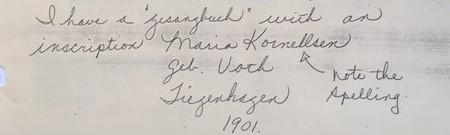 I have a "gesangbuch" with an
inscription Maria Kornellsen
geb. Voth
Tiegenhagen
1901.
note the
spelling.